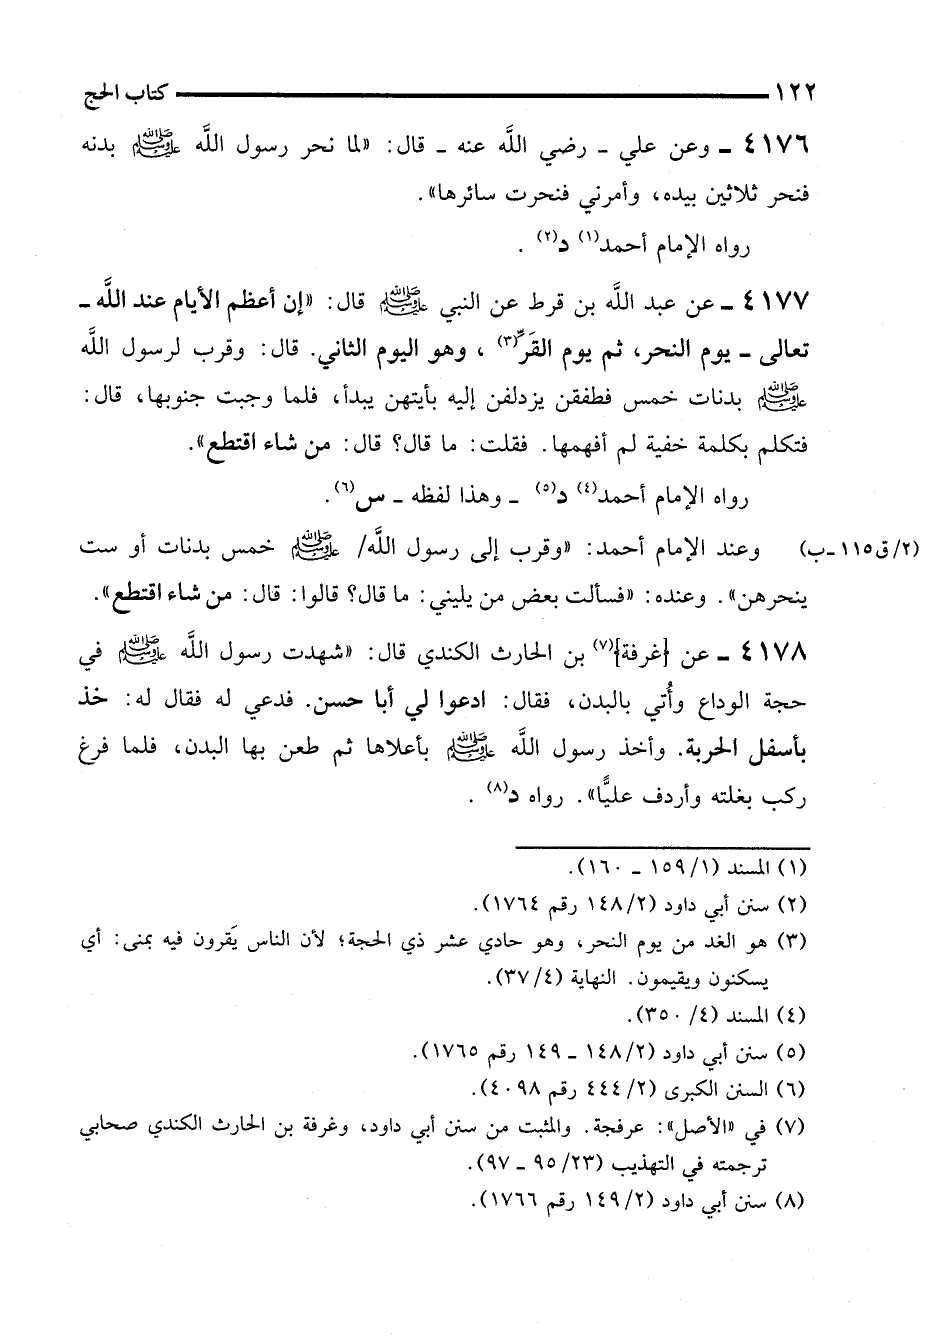 ١٢٢ كتاب الحج
٤١٧٦ ـ وعن علي ـ رضي اللَّه عنه ـ قال: «لما نحر رسول اللَّه ﷺ بدنه
فنحر ثلاثين بيده، وأمرني فنحرت سائرها».
رواه الإمام أحمد(١) د(٢) .
٤١٧٧ ـ عن عبد اللَّه بن قرط عن النبي ﷺ قال: «إن أعظم الأيام عند اللَّه ـ
تعالى ـ يوم النحر، ثم يوم القَرِّ(٣) ، وهو اليوم الثاني. قال: وقرب لرسول اللَّه
ﷺ بدنات خمس فطفقن يزدلفن إليه بأيتهن يبدأ، فلما وجبت جنوبها، قال:
فتكلم بكلمة خفية لم أفهمها. فقلت: ما قال؟ قال: من شاء اقتطع».
رواه الإمام أحمد(٤) د(٥) ـ وهذا لفظه ـ س(٦).
(٢/ق١١٥ـب) وعند الإمام أحمد: «وقرب إلى رسول اللَّه/ ﷺ خمس بدنات أو ست
ينحرهن». وعنده: «فسألت بعض من يليني: ما قال؟ قالوا: قال: من شاء اقتطع».
٤١٧٨ ـ عن {غرفة}(٧) بن الحارث الكندي قال: «شهدت رسول اللَّه ﷺ في
حجة الوداع وأُتي بالبدن، فقال: ادعوا لي أبا حسن. فدعي له فقال له: خذ
بأسفل الحربة. وأخذ رسول اللَّه ﷺ بأعلاها ثم طعن بها البدن، فلما فرغ
ركب بغلته وأردف عليًّا». رواه د(٨) .
(١) المسند (١/ ١٥٩ ـ ١٦٠).
(٢) سنن أبي داود (٢/ ١٤٨ رقم ١٧٦٤).
(٣) هو الغد من يوم النحر، وهو حادي عشر ذي الحجة؛ لأن الناس يَقرون فيه بمنى: أي
يسكنون ويقيمون. النهاية (٤/ ٣٧).
(٤) المسند (٤/ ٣٥٠).
(٥) سنن أبي داود (٢/ ١٤٨ ـ ١٤٩ رقم ١٧٦٥).
(٦) السنن الكبرى (٢/ ٤٤٤ رقم ٤٠٩٨).
(٧) في «الأصل»: عرفجة. والمثبت من سنن أبي داود، وغرفة بن الحارث الكندي صحابي
ترجمته في التهذيب (٢٣/ ٩٥ ـ ٩٧).
(٨) سنن أبي داود (٢/ ١٤٩ رقم ١٧٦٦).